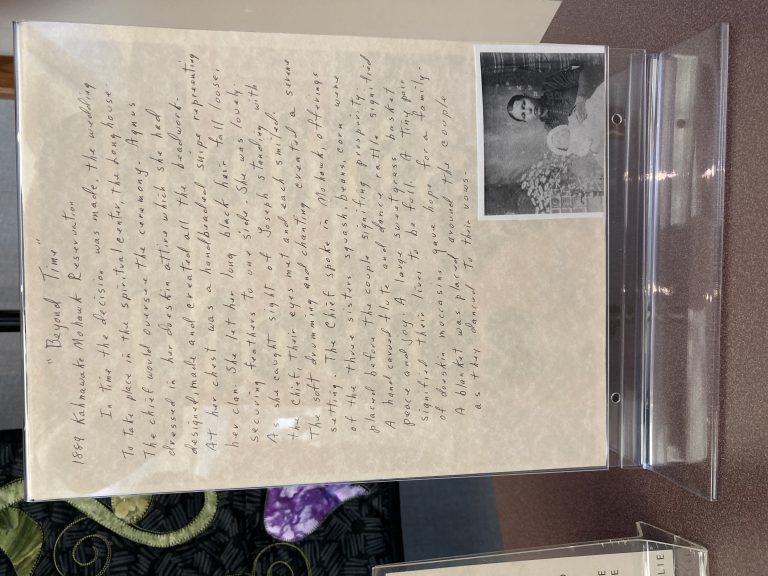 "Beyond Time"
1889 Kahnawake Mohawk Reservation
In time the decision was made, the wedding
To take place in the spiritual center, the Long house
The chief would oversee the ceremony. Agnus
dressed in her doeskin attire which she had
designed, made and created all the beadwork.
At her chest was a handbeaded snipe represnting
her clan. She let her long black hair fall loose,
securing feathers to one side. She was lovely.
As she caught sight of Joseph standing with
the Chief, Their eyes met and each smiled.
The soft drumming and chanting created a serene
setting. The Chief spoke in Mohawk, offerings
of the three sisters squash, beans, corn were
placed before the couple signifing prosparity.
A hand carved flute and dance rattle signified
peace and joy. A large sweetgrass basket
signified their lives to be full. A tiny pair
of doeskin moccasins gave hope for a family.
A blanket was placed around the couple
as they danced to their vows.
LIE